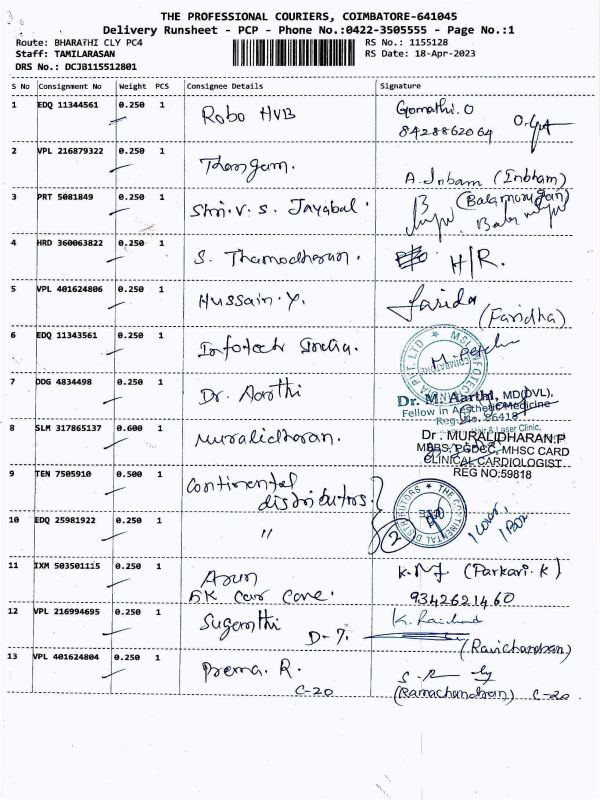 THE PROFESSIONAL COURIERS, COIMBATORE-641045
Delivery Runsheet - PCP - Phone No.:0422-3505555 - Page No.:1
Route: BHARATHI CLY PC4
RS No.: 1155128
Staff: TAMILARASAN
RS Date: 18-Apr-2023
DRS No.: DCJB115512801
S No Consignment No Weight PCS Consignee Details Signature
1 EDQ 11344561 0.250 1 Robo HVB Gomathi.O
8428862064
2 VPL 216879322 0.250 1 Thangam. A. Inbam (Inbham)
3 PRT 5081849 0.250 1 Shri. V. S. Jayabal. (Balamurugan)
4 HRD 360063822 0.250 1 S. Thamodharan. H/R.
5 VPL 401624806 0.250 1 Hussain. Y. Farida
(Faridha)
6 EDQ 11343561 0.250 1 Infotech India.
7 DDG 4834498 0.250 1 Dr. Aarthi Dr. M. Aarthi, MD(DVL),
Fellow in Aesthetic Medicine
Reg. No. 86418
Hair & Laser Clinic,
8 SLM 317865137 0.600 1 Muralidharan. Dr. MURALIDHARAN.P
MBBS, PGDCC, MHSC CARD
CLINICAL CARDIOLOGIST
REG NO:59818
9 TEN 7505910 0.500 1 Continental
distributors. THE CONTINENTAL DISTRIBUTORS
10 EDQ 25981922 0.250 1 " 2 1 Cover,
1 Box
11 IXM 503501115 0.250 1 Arun K.M.J (Parkavi. K)
AK Car Care. 9342621460
12 VPL 216994695 0.250 1 Suganthi K. Raichand
D-7. (Ravichandran)
13 VPL 401624804 0.250 1 Prema. R.
C-20 (Ramachandran) C-20